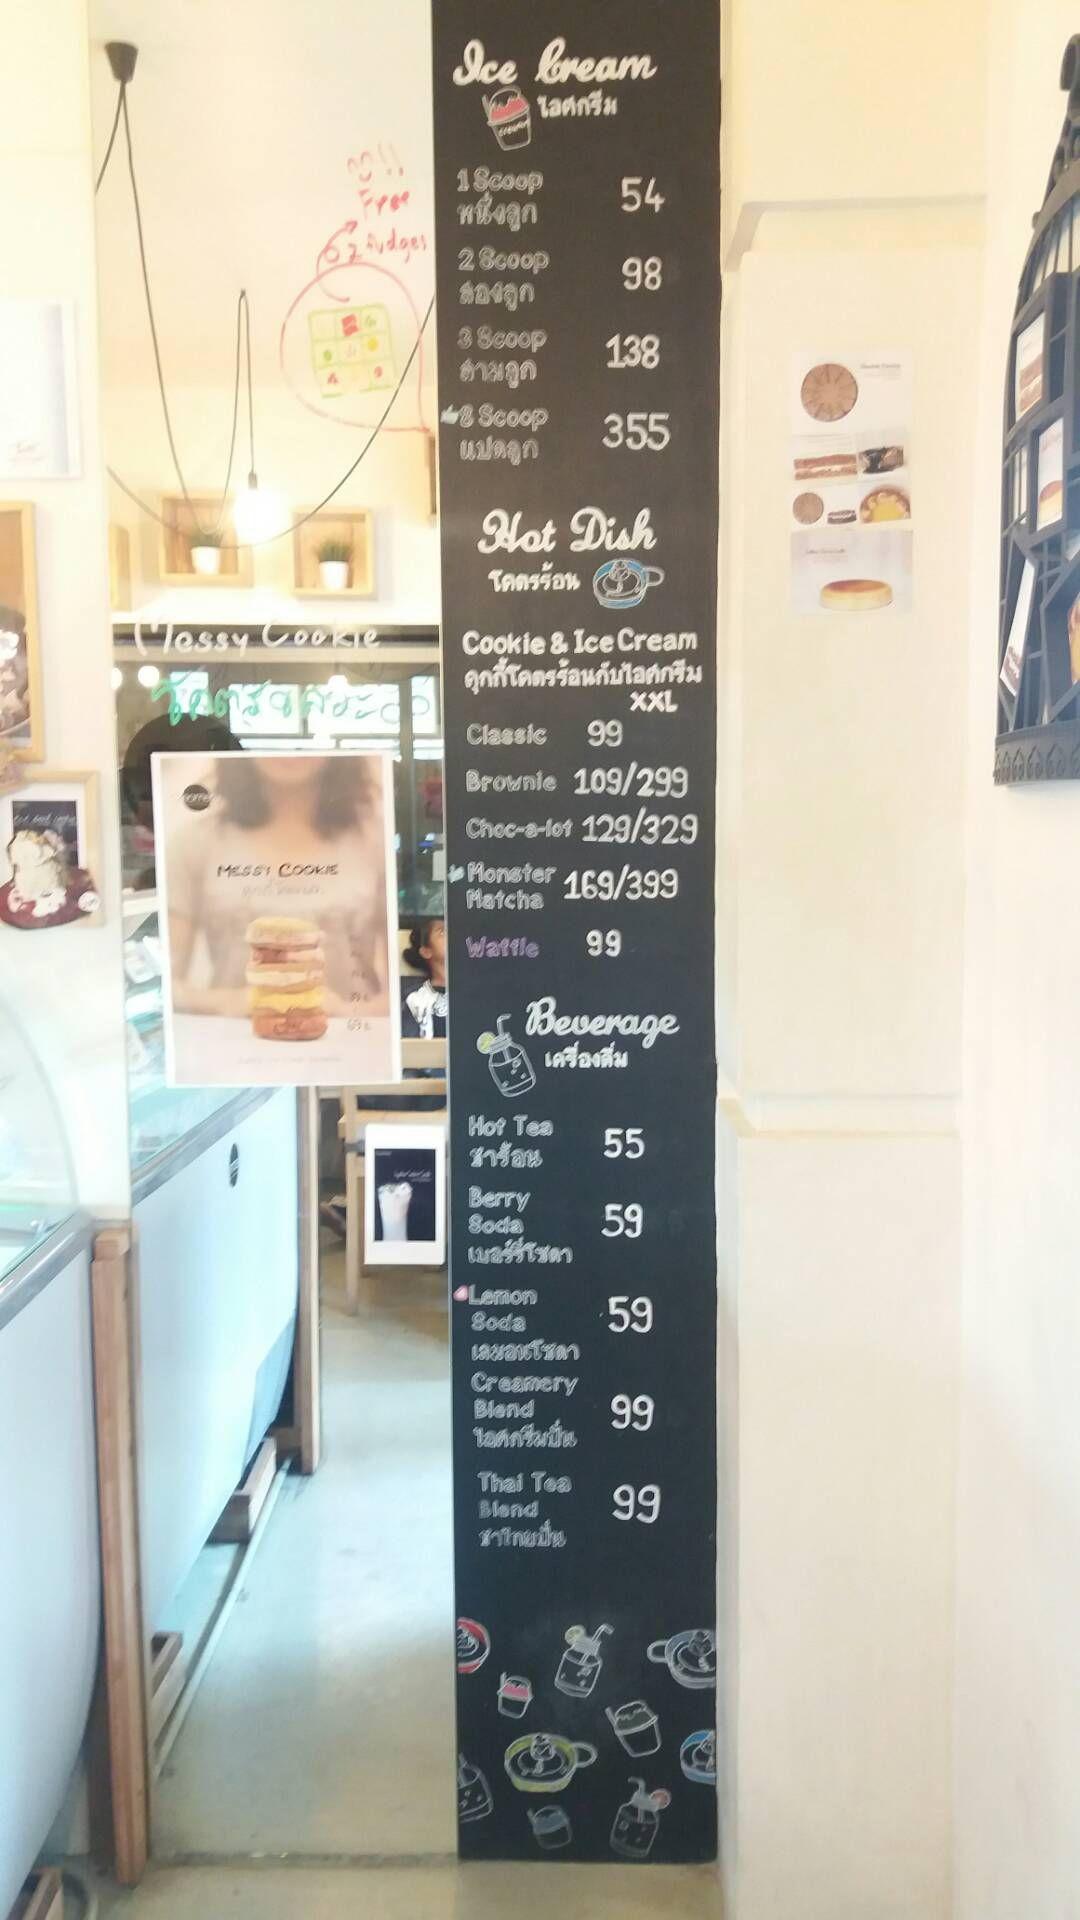 Ice Cream
ไอศกรีม
1 Scoop 54
หนึ่งลูก
2 Scoop 98
สองลูก
3 Scoop 138
สามลูก
8 Scoop 355
แปดลูก
Hot Dish
โคตรร้อน
Cookie & Ice Cream
คุกกี้โคตรร้อนกับไอศกรีม
XXL
Classic 99
Brownie 109/299
Choc-a-lot 129/329
Monster Matcha 169/399
Waffle 99
Beverage
เครื่องดื่ม
Hot Tea 55
ชาร้อน
Berry
Soda 59
เบอร์รี่โซดา
Lemon
Soda 59
เลมอนโซดา
Creamery
Blend 99
ไอศกรีมปั่น
Thai Tea
Blend 99
ชาไทยปั่น
Free
2 fudges
Messy Cookie
MESSY COOKIE
69